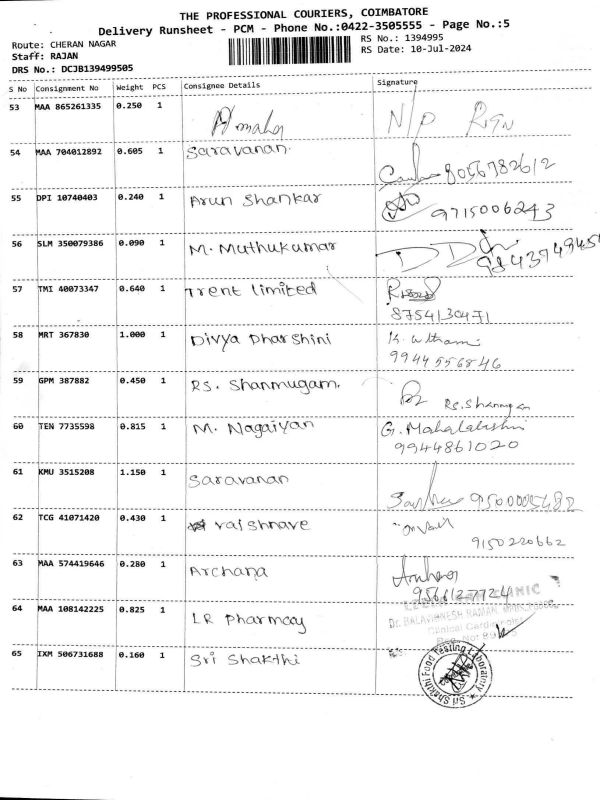 THE PROFESSIONAL COURIERS, COIMBATORE
Delivery Runsheet - PCM - Phone No.:0422-3505555 - Page No.:5
Route: CHERAN NAGAR
RS No.: 1394995
Staff: RAJAN
RS Date: 10-Jul-2024
DRS No.: DCJB139499505
S No Consignment No Weight PCS Consignee Details Signature
53 MAA 865261335 0.250 1 N/P
54 MAA 704012892 0.605 1 Saravanan. 8056782612
55 DPI 10740403 0.240 1 Arun Shankar 9715006243
56 SLM 350079386 0.090 1 M. Muthukumar
57 TMI 40073347 0.640 1 Trent limited
8754130471
58 MRT 367830 1.000 1 Divya Dharshini
9944556846
59 GPM 387882 0.450 1 RS. Shanmugam. Rs. Shanmugam
60 TEN 7735598 0.815 1 M. Nagaiyan G. Mahalakshmi
9944861020
61 KMU 3515208 1.150 1 Saravanan
62 TCG 41071420 0.430 1 vaishnave
9150220662
63 MAA 574419646 0.280 1 Archana
9566127724
CLINIC
Dr. BALAVIGNESH RAMAN,
Clinical Cardiologist
64 MAA 108142225 0.825 1 LR Pharmacy
65 IXM 506731688 0.160 1 Sri Shakthi
Sri Shakthi Food Testing Laboratory